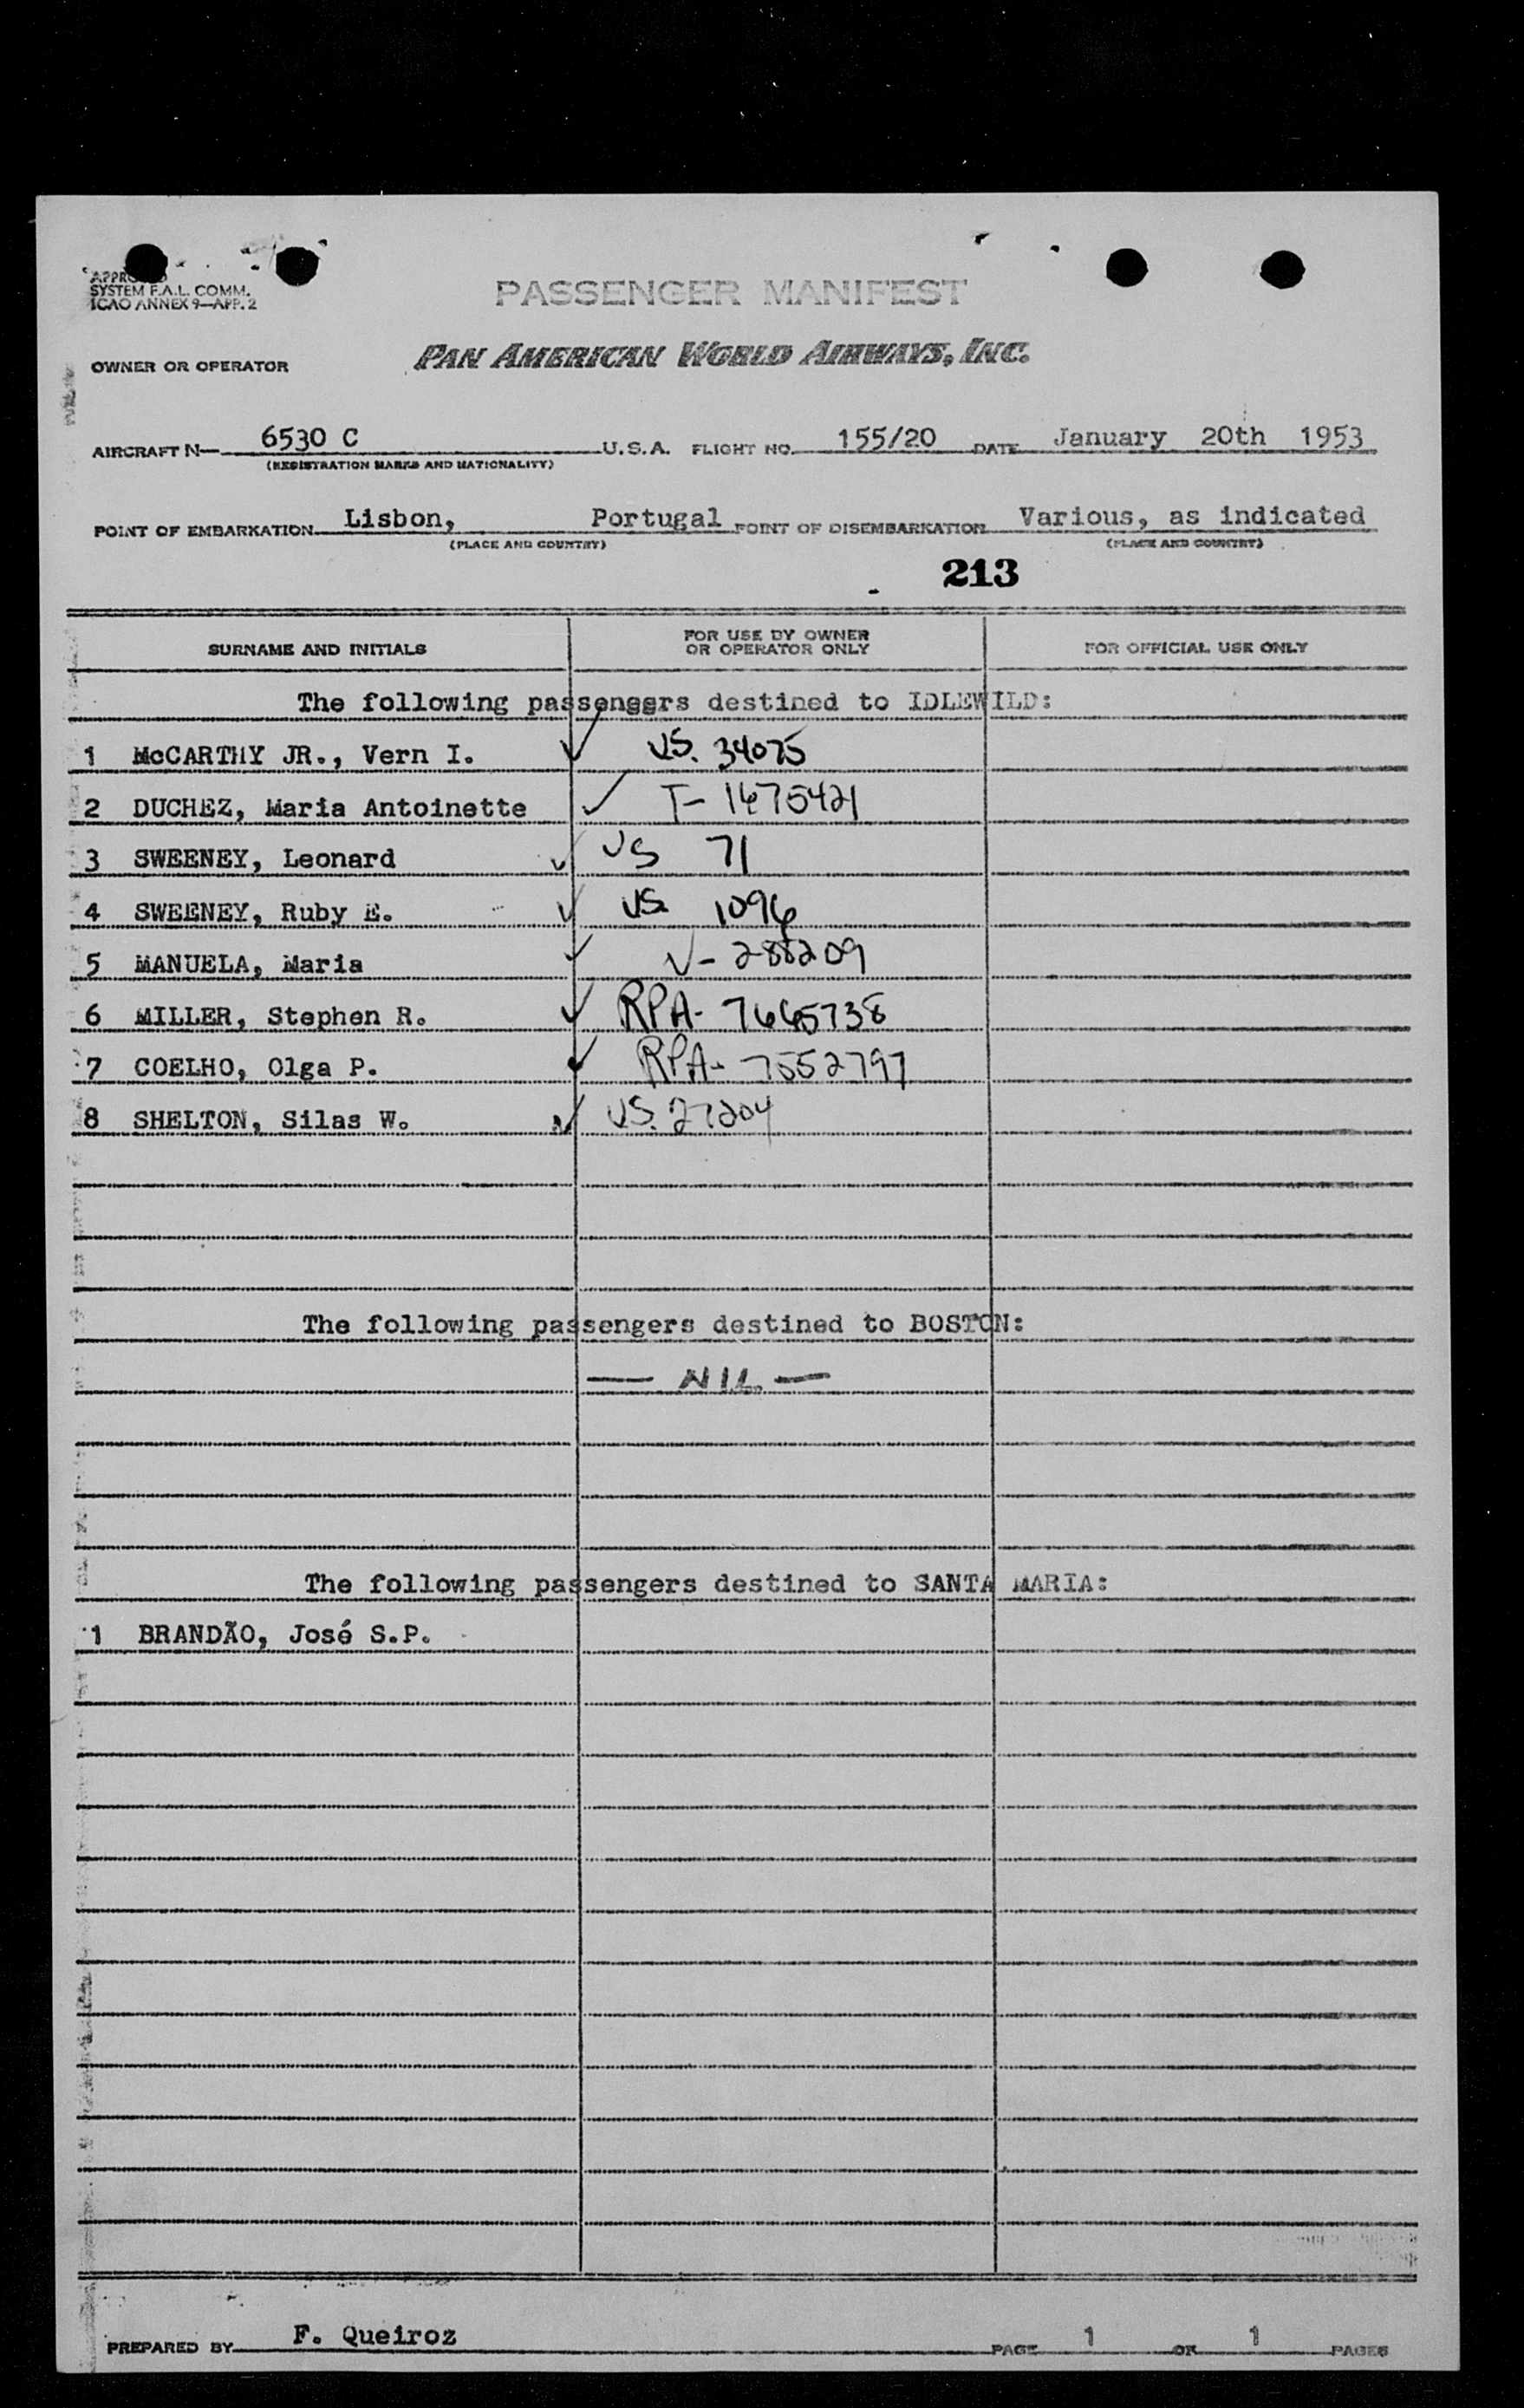 SYSTEM F.A.L. COMM.
ICAO ANNEX 9—APP. 2
PASSENGER MANIFEST
OWNER OR OPERATOR PAN AMERICAN WORLD AIRWAYS, INC.
AIRCRAFT N— 6530 C U.S.A. FLIGHT NO. 155/20 DATE January 20th 1953
(REGISTRATION MARKS AND NATIONALITY)
POINT OF EMBARKATION Lisbon, Portugal POINT OF DISEMBARKATION Various, as indicated
(PLACE AND COUNTRY) (PLACE AND COUNTRY)
213
SURNAME AND INITIALS FOR USE BY OWNER OR OPERATOR ONLY FOR OFFICIAL USE ONLY
The following passengers destined to IDLEWILD:
1 McCARTHY JR., Vern I. ✓ US. 34075
2 DUCHEZ, Maria Antoinette ✓ T- 1675421
3 SWEENEY, Leonard ✓ US 71
4 SWEENEY, Ruby E. ✓ US 1096
5 MANUELA, Maria ✓ V- 288209
6 MILLER, Stephen R. ✓ RPA- 7665738
7 COELHO, Olga P. ✓ RPA- 7552797
8 SHELTON, Silas W. ✓ US. 27204
The following passengers destined to BOSTON:
— NIL —
The following passengers destined to SANTA MARIA:
1 BRANDÃO, José S.P.
PREPARED BY F. Queiroz PAGE 1 OF 1 PAGES